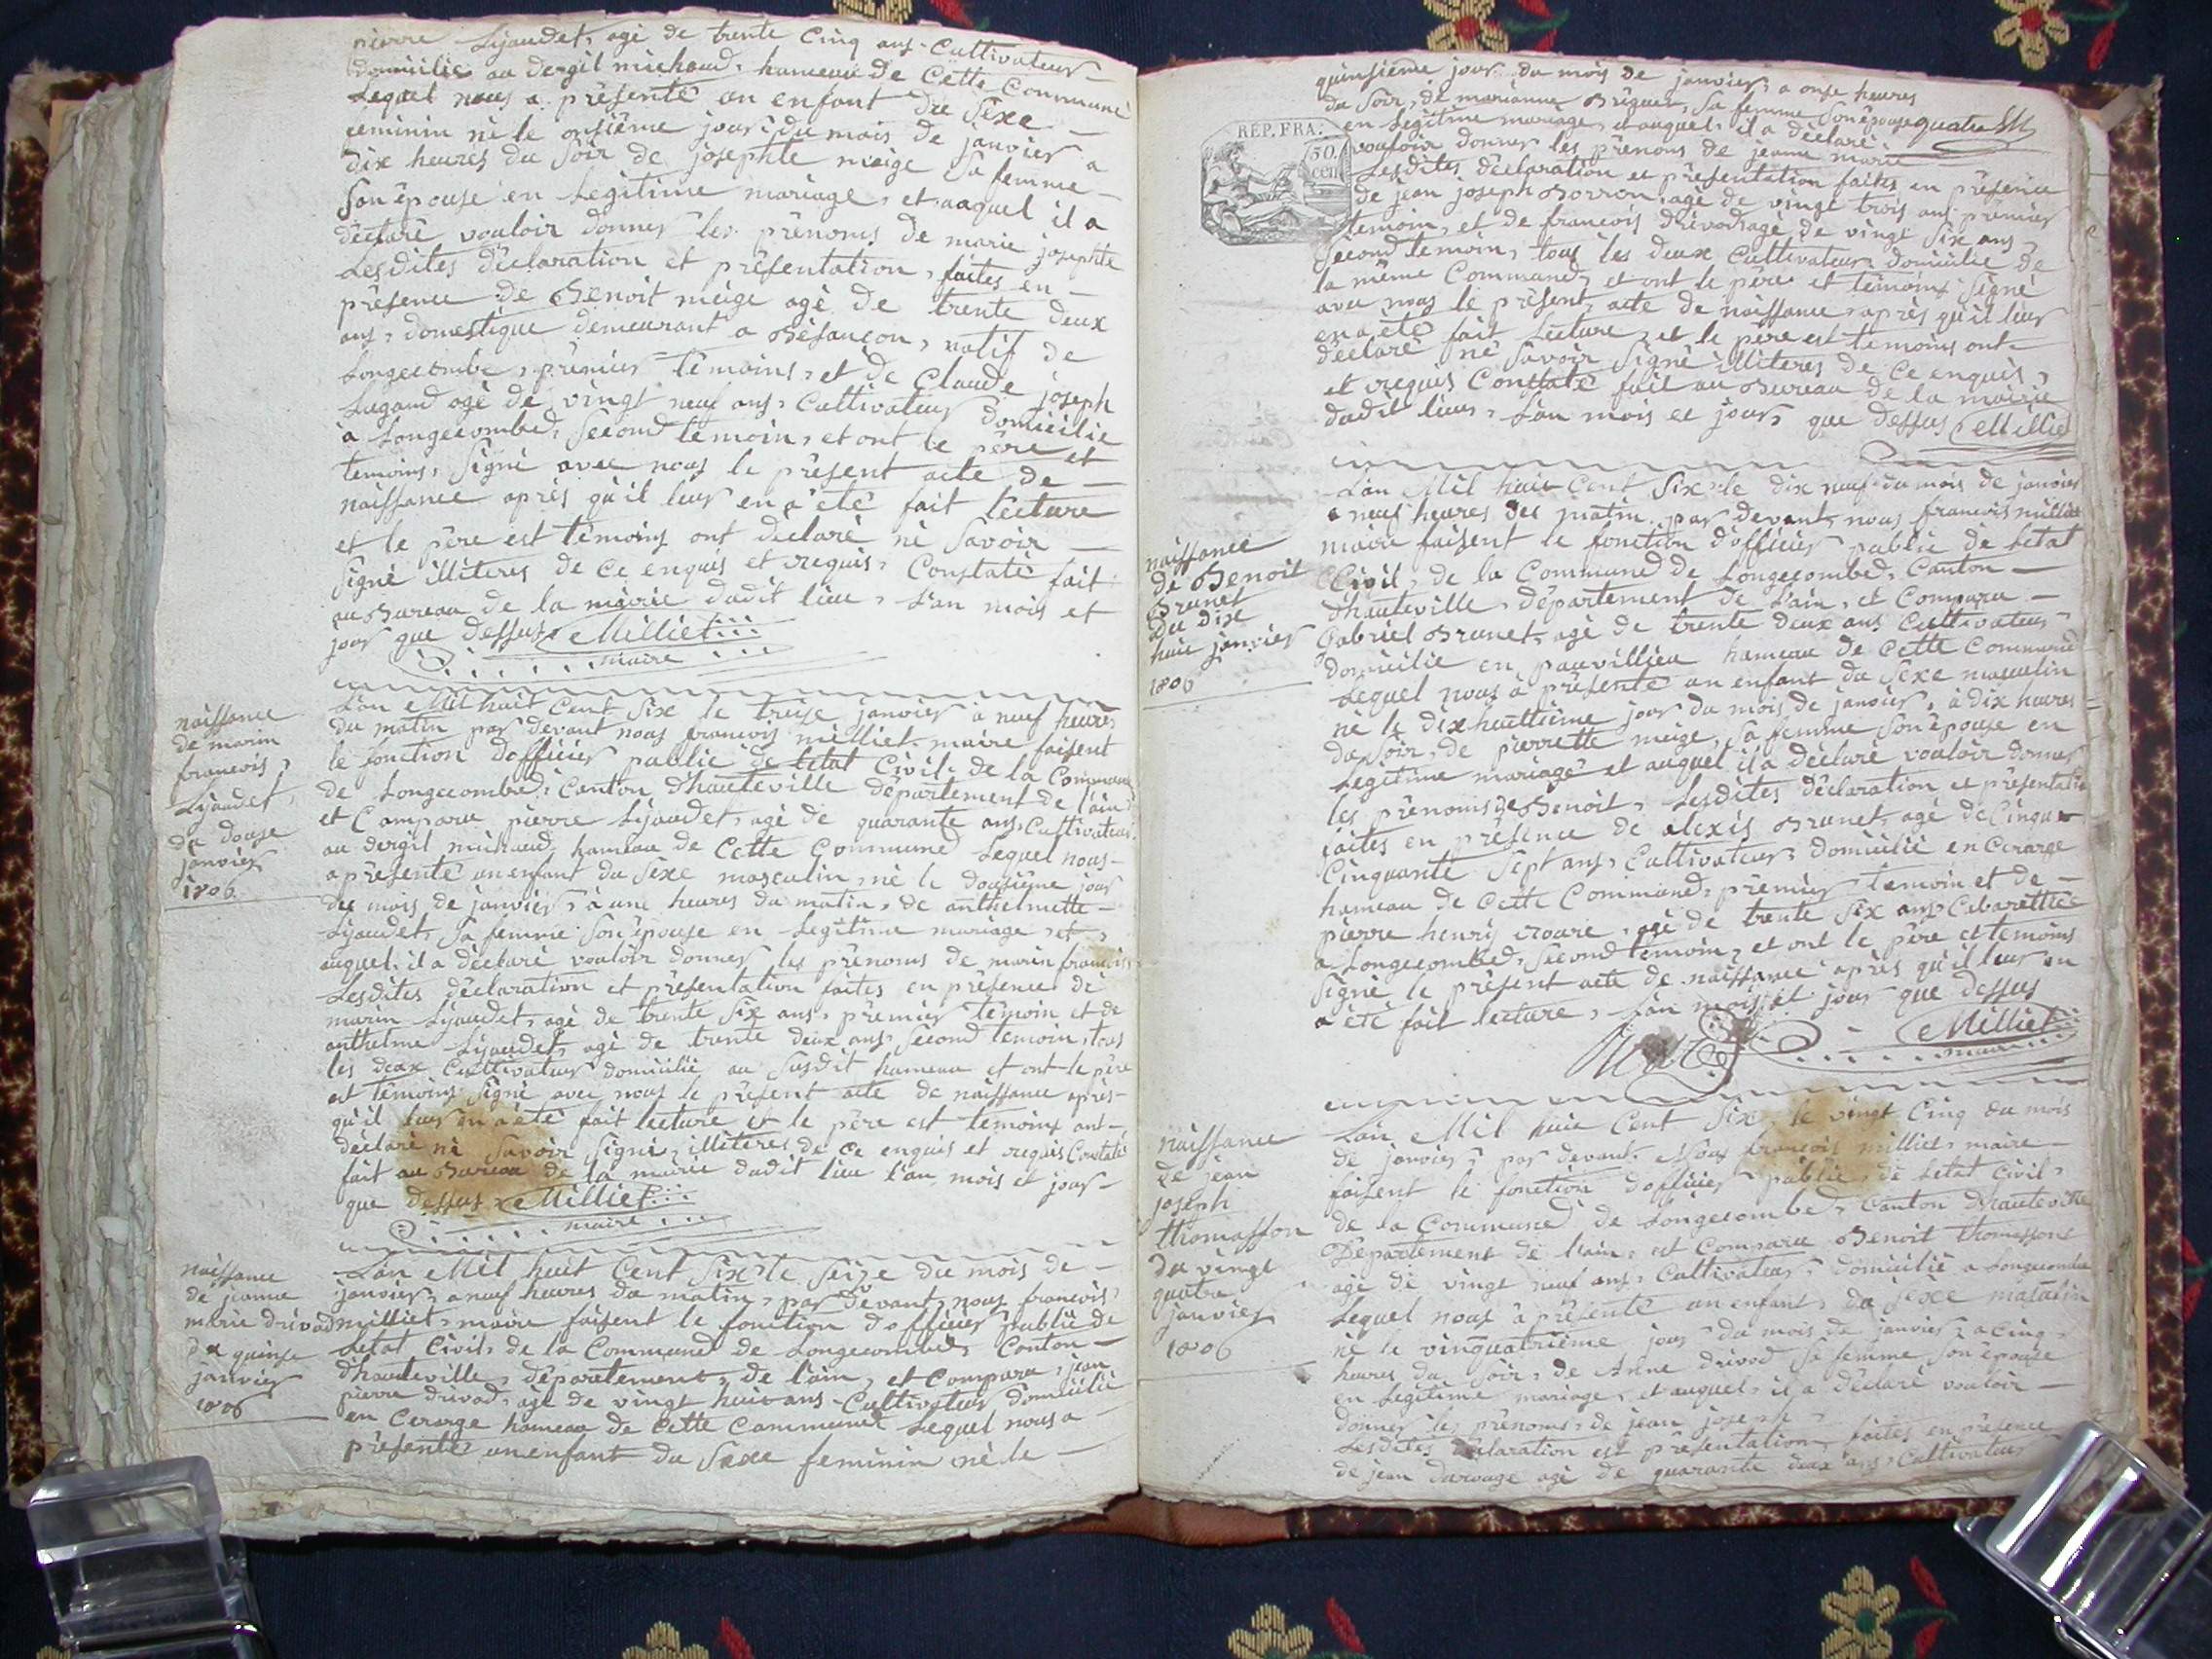 pierre Lyaudet, agé de trente Cinq ans Cultivateur
domicilié au dergit michaud, hameau de Cette Commune
Lequel nous a présenté un enfant du Sexe
feminin né le onsième jour du mois de janvier a
dix heures du Soir de josephte meige Sa femme
Son épouse en Legitime mariage, et auquel il a
déclaré vouloir donner les prénoms de marie josephte
Lesdites déclaration et présentation, faites en
présence de Benoit meige agé de trente deux
ans, domestique demeurant a Besançon, natif de
Longecombe, prémier témoins, et de Claude joseph
Lugand agé de vingt neuf ans, Cultivateur domicilié
à Longecombe, Sécond témoin, et ont le père et
témoins, Signé avec nous le présent acte de
naissance après qu'il leur en a été fait lecture
et le père est témoins ont déclaré né Savoir
Signé illiteres de Ce enquis et requis, Constaté fait
au Bureau de la mairie dudit lieu, L'an mois et
jour que dessus Milliet
maire
naissance
de marin
francois,
Lyaudet,
du douse
janvier
1806
L'an Mil huit Cent Six le treise janvier à neuf heures
du matin par devant nous francois milliet maire faisent
le fonction dofficier public de letat Civil, de la Commune
de Longecombe, Canton dhauteville département de l'ain
et Comparu pierre Lyaudet, agé de quarante ans, Cultivateur
au dergit michaud, hameau de Cette Commune Lequel nous
a présenté un enfant du Sexe masculin, né le dousième jour
du mois de janvier, à une heures du matin, de anthelmette
Lyaudet, Sa femme Son épouse en Légitime mariage, et,
auquel il a déclaré vouloir donner les prénoms de marin francois
Lesdites déclaration et présentation faites en présence de
marin Lyaudet, agé de trente Six ans, prémier témoin et de
anthelme Lyaudet, agé de trente deux ans, Sécond témoin, tous
les deux Cultivateur domicilié au Susdit hameau et ont le père
et témoins Signé avec nous le présent acte de naissance après
qu'il leur en a été fait lecture et le père est témoins ont
déclaré né Savoir Signé, illiteres de Ce enquis et requis Constaté
fait au Bureau de la mairie dudit lieu l'an mois et jour
que dessus Milliet
maire
naissance
de jeanne
marie drivod
du quinse
janvier
1806
L'an Mil huit Cent Six le Seize du mois de
janvier, a neuf heures du matin, par devant, nous francois,
milliet, maire faisent le fonction dofficier publié de
Letat Civil, de la Commune de Longecombe, Canton
dhauteville, département, de l'ain, et Comparu, jean
pierre drivod, agé de vingt huit ans Cultivateur domicilié
en Cerarge hameau de Cette Commune Lequel nous a
présenté un enfant du Sexe feminin né le
quinsième jour du mois de janvier, a onse heures
du Soir, de marianne Briguet, Sa femme Son épouse quatre
en Légitime mariage, et auquel, il a déclaré
REP. FRA.
50.
cen
vouloir donner les prénoms de jeanne marie
Lesdites déclaration et présentation faites en présence
de jean joseph Borron, agé de vingt trois ans prémier
témoin, et de francois drivod, agé de vingt Six ans,
Sécond témoin, tous les deux Cultivateur domicilié de
la même Commune, et ont le père et témoins Signé
avec nous le présent acte de naissance, après qu'il leur
en a été fait Lecture, et le père est témoins ont
déclaré né Savoir Signé illiteres de Ce enquis,
et requis Constaté fait au Bureau de la mairie
dudit lieu, L'an mois et jour, que dessus Milliet
naissance
de Benoit
Brunet
du dix
huit janvier
1806
L'an Mil huit Cent Six le dix neuf du mois de janvier
a neuf heures du matin par devant nous francois milliet
maire faisent le fonction dofficier public de Letat
Civil, de la Commune de Longecombe, Canton
dhauteville, département de L'ain, et Comparu
Gabriel Brunet, agé de trente deux ans Cultivateur
domicilié en pauvillieu hameau de Cette Commune
Lequel nous à présenté un enfant du Sexe masculin
né le dix huittième jour du mois de janvier, à dix heures
du Soir, de pierrette meige, Sa femme Son épouse en
Legitime mariage et auquel il a déclaré vouloir donner
les prénoms de Benoit, Lesdites déclaration et présentation
faites en présence de alexis Brunet, agé de Cinqua
Cinquante Sept ans, Cultivateur domicilié en Cerarge
hameau de Cette Commune, prémier témoin et de
pierre henry, agé de trente Six ans Cabarettier
a Longecombe, Sécond témoin, et ont le père et témoins
Signé le présent acte de naissance après qu'il leur en
a été fait lecture, L'an mois et jour que dessus
Milliet
maire
naissance
de jean
joseph
thomasson
du vingt
quatre
janvier
1806
L'an Mil huit Cent Six, le vingt Cinq du mois
de janvier, par devant, Nous francois milliet, maire
faisent le fonction dofficier public, de Letat Civil,
de la Commune de Longecombe, Canton Dhauteville
Département de l'ain, est Comparu Benoit thomasson
agé de vingt neuf ans, Cultivateur, domicilié a Longecombe
Lequel nous à présenté un enfant, du Sexe masculin
né le vinquatrième jour du mois de janvier, a cinq
heures du Soir, de Anne drivod Sa femme Son épouse
en Légitime mariage, et auquel, il a déclaré vouloir
donner les prénoms, de jean joseph,
Lesdites déclaration est présentation, faites en présence
de jean agé de quarante deux ans, Cultivateur